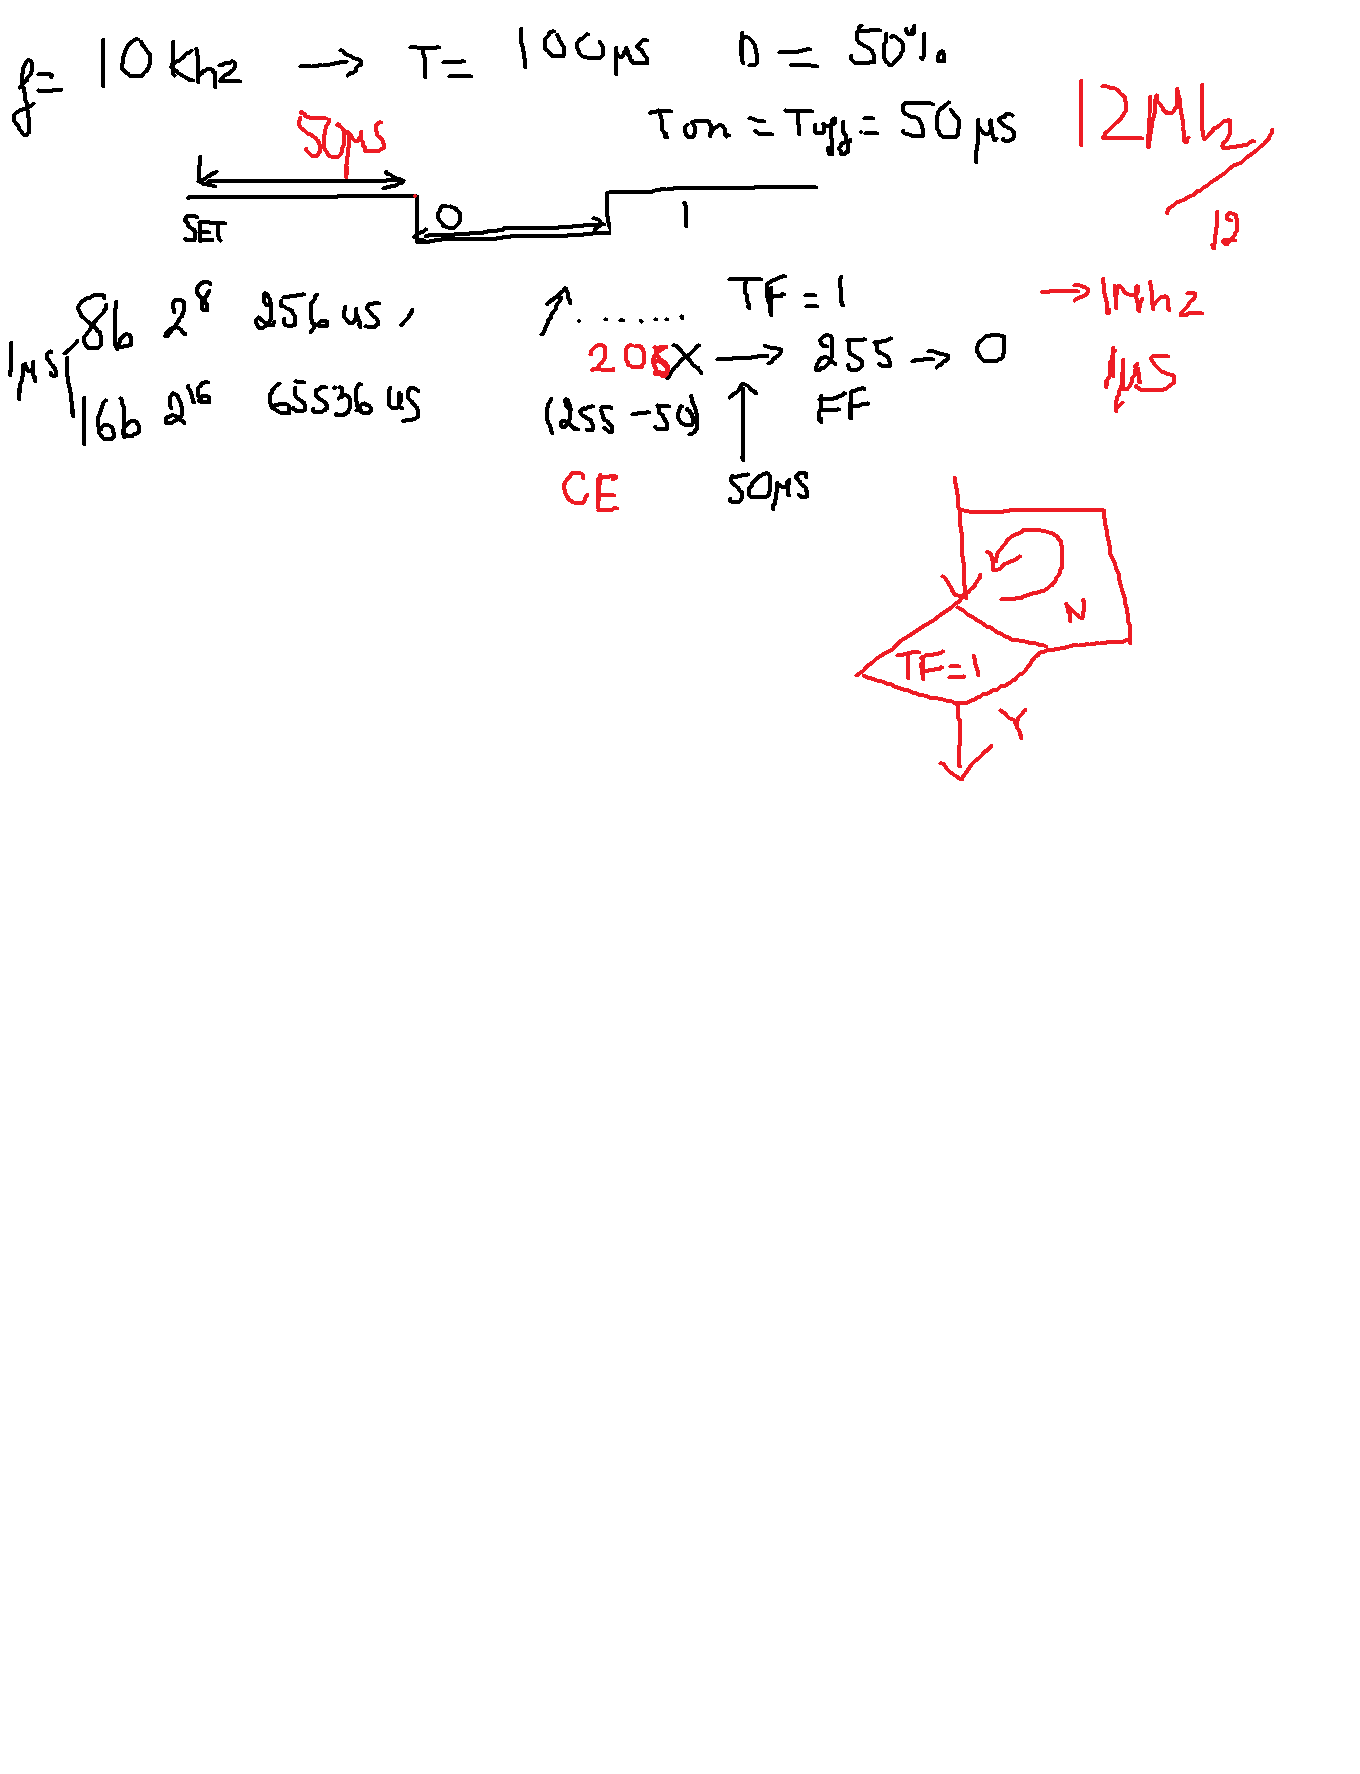 f= 10 Khz → T= 100μs D = 50%
Ton = Toff = 50μs
12Mhz / 12
50μs
SET 0 1
→ 1Mhz
1μs
1μs
8b 2⁸ 256 us,
16b 2¹⁶ 65536 us
....... TF = 1
X → 255 → 0
(255 - 50) FF
CE 50μs
N
TF=1
Y